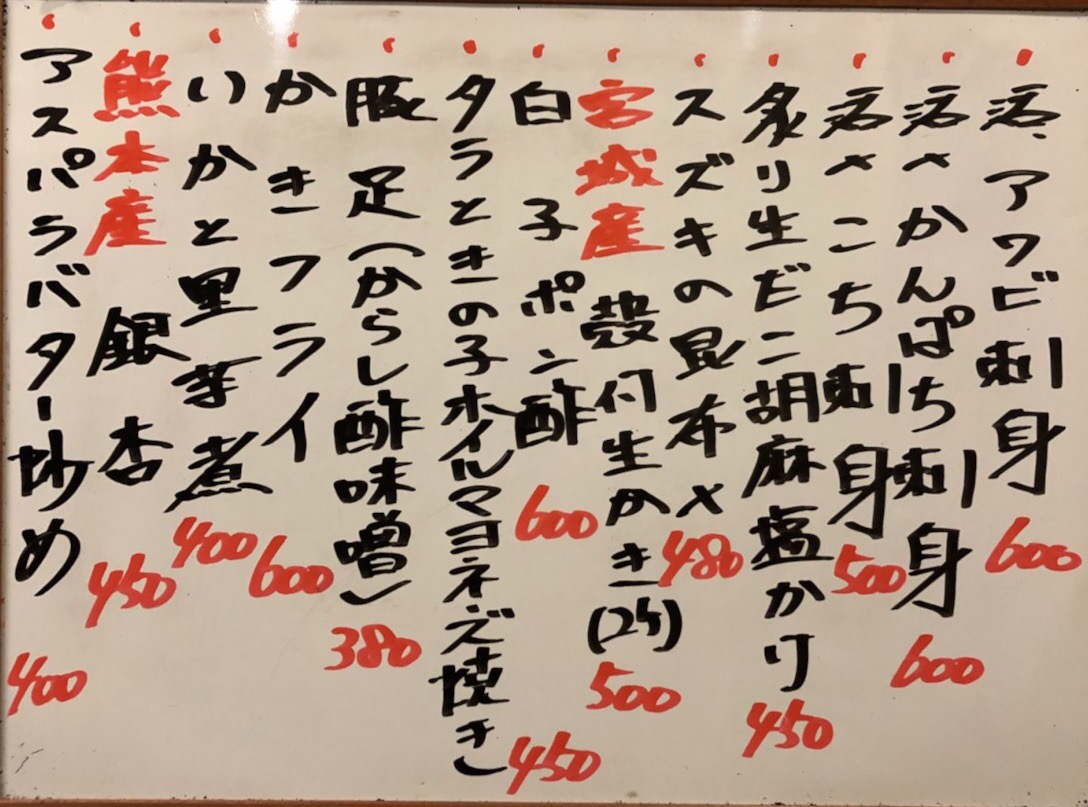 活〆アワビ刺身 600
活〆かんぱち刺身 600
活〆こち刺身 500
炙り生だこ胡麻塩かけ 450
スズキの昆布〆 480
宮城産 殻付生かき(2ケ) 500
白子ポン酢 600
タラときの子ホイルマヨネーズ焼き 450
豚足(からし酢味噌) 380
かきフライ 600
いかと里芋煮 400
熊本産 銀杏 450
アスパラバター炒め 400